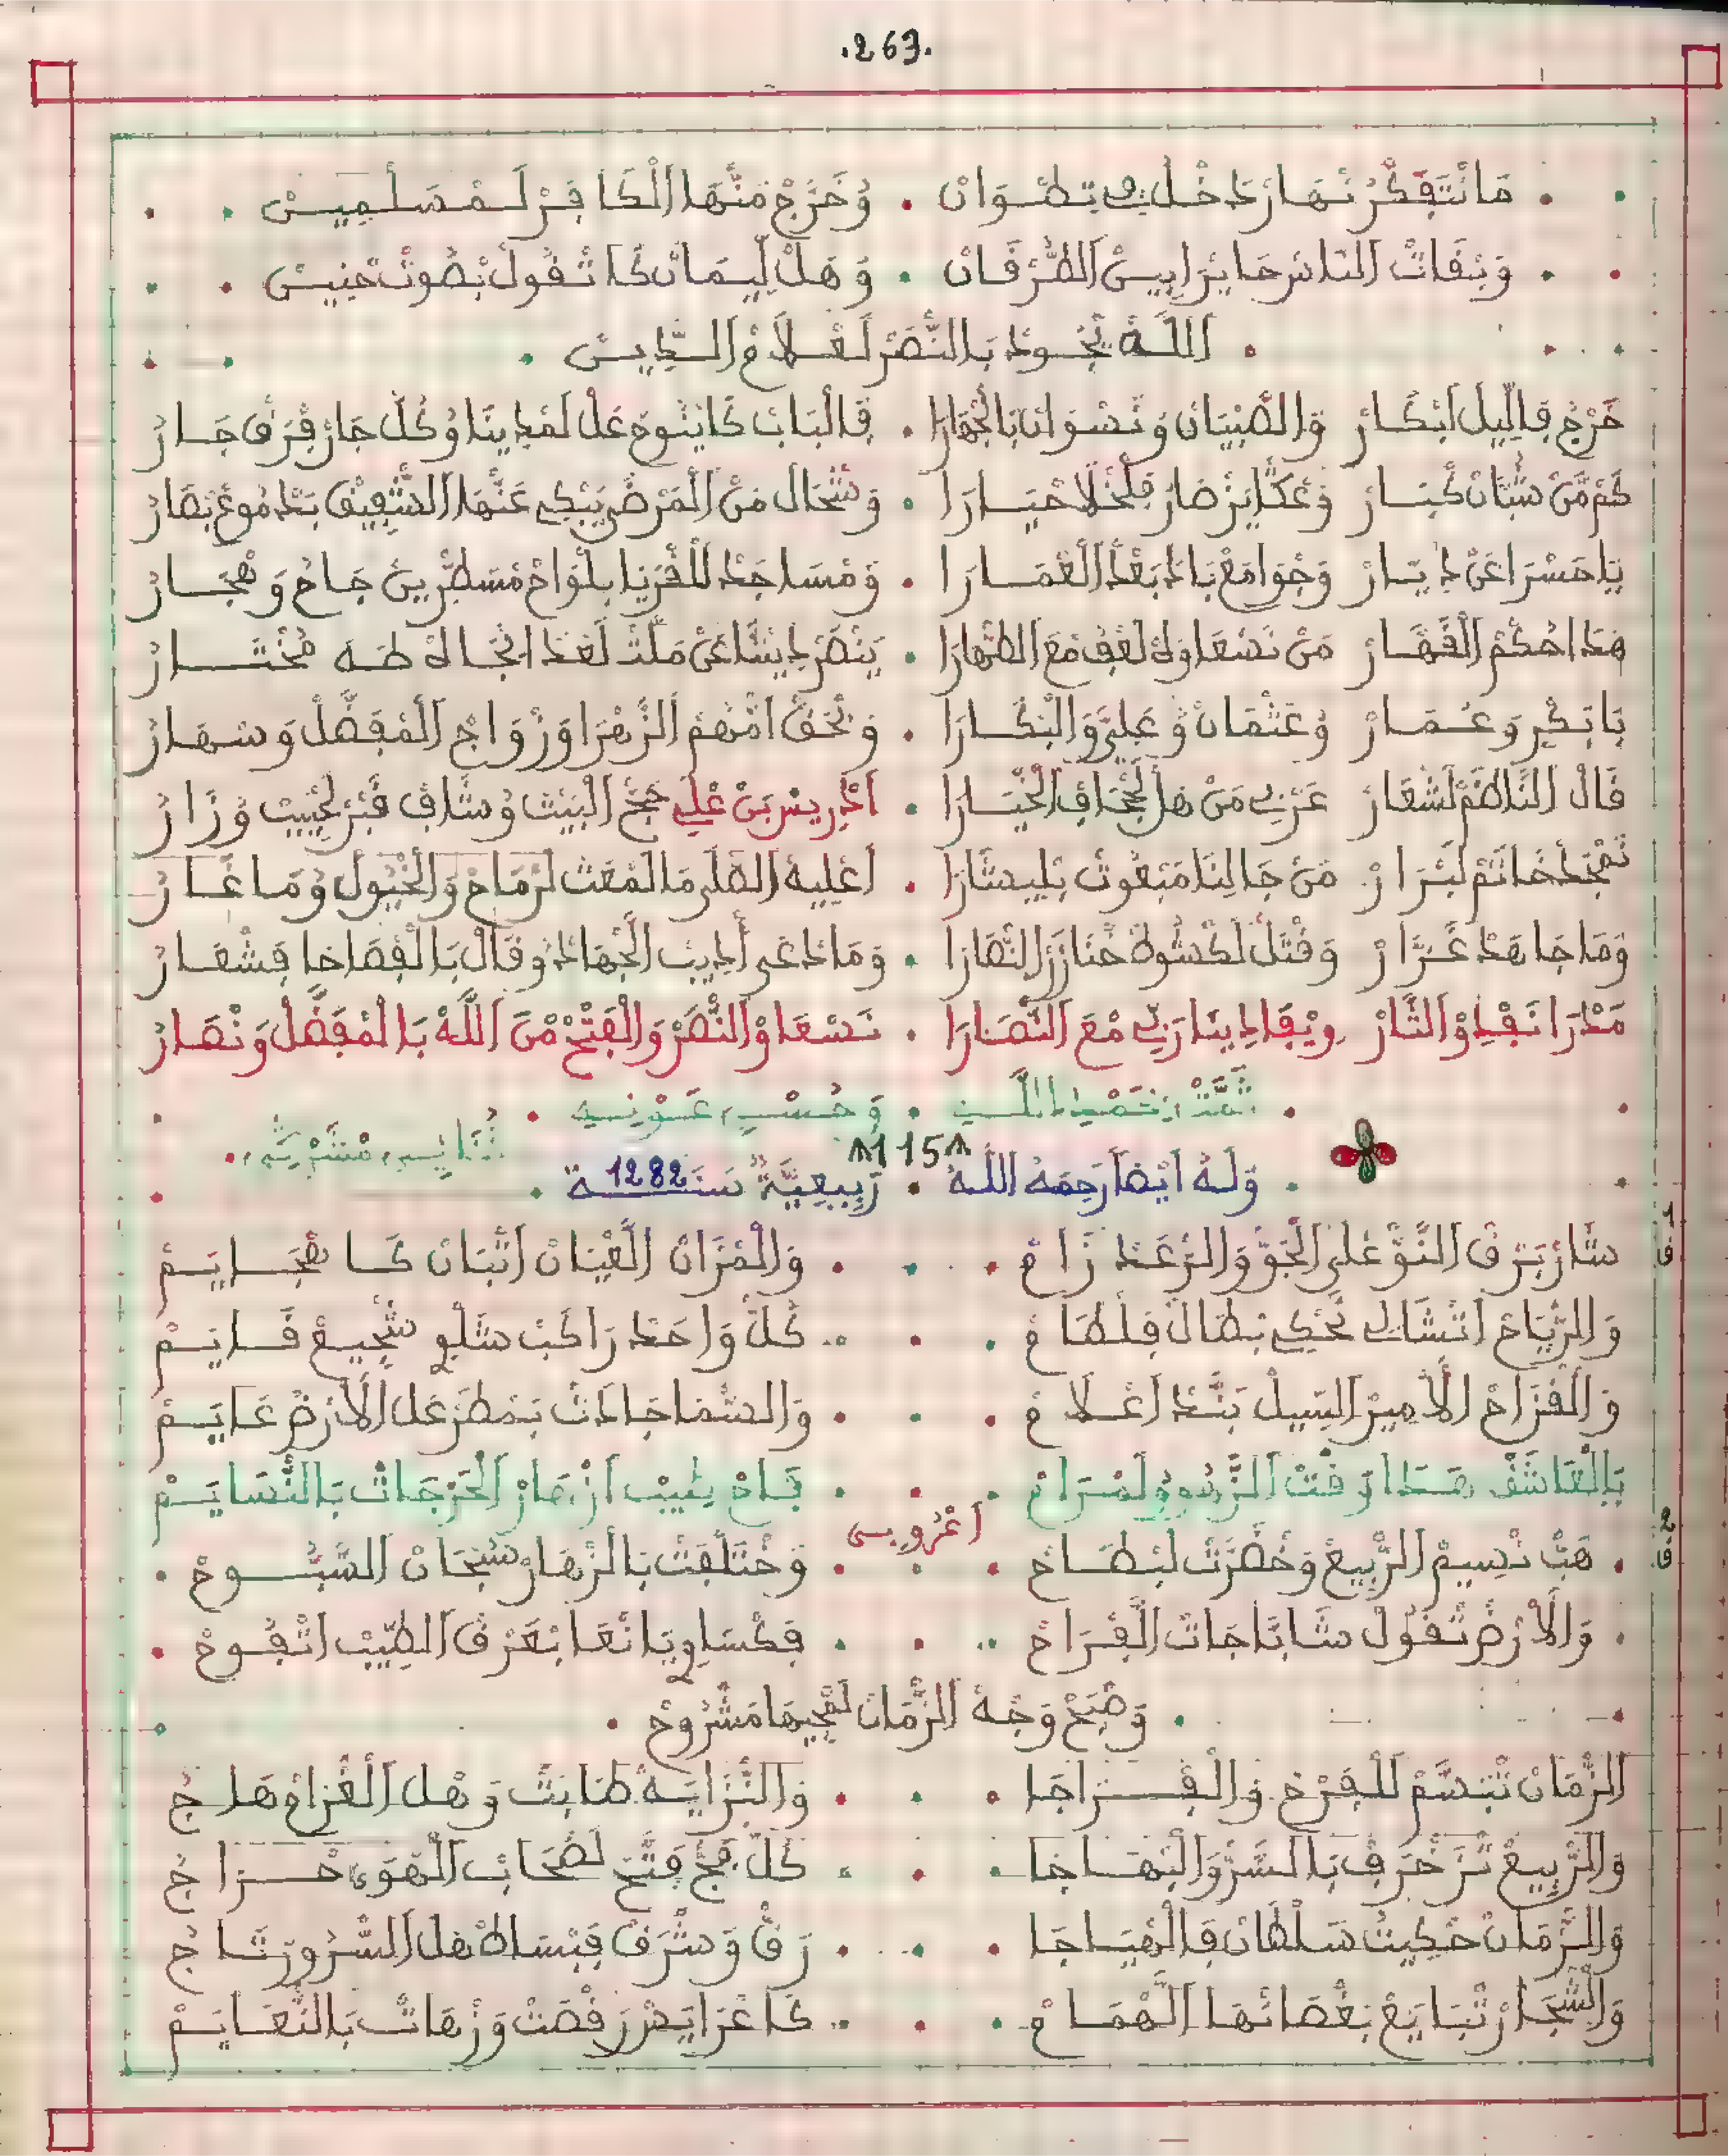 .263.
مَانْتَفِكَّرْ نْهَارْ دَخْلْ فِي تِطْوَانْ . وُخَرْجْ مَنْهَا الْكَافِرْ لَمْسَلْمِينْ
وَبْقَاتْ النَّاسْ حَايْرَا بِينْ الطُّرْقَانْ . وَهَلْ لِيمَانْ كَاتْقُولْ بْصُوتْ حْنِينْ
اَللَّهْ يْجُودْ بَالنَّصْرْ لَعْلَامْ الدِّينْ
خَرْجْ فِاللِّيلْ ابْكَارْ وَالصَّبْيَانْ وَنْسْوَانْ بَالْجْهَارَا . فَالْبَابْ كَايْنُوحْ عَلْ لَمْدِينَا وُكُلّْ جَارْ فِرَقْ جَارْ
كَمْ مَنْ شَبَّانْ كْبَارْ وَشْحَالْ مَنْ الْمَرْضَى يَبْكِي عَنْهَا الشَّفِيقْ بَدْمُوعْ
يَاحَسْرَا عَنْ دِيَارْ وَجْوَامَعْ بَادْ بَعْدْ الْعْمَارَا . وَمْسَاجَدْ لَلْقْرَيَا بِلْوَاحْ مْسَطّْرِينْ
هَذَا حُكْمْ الْقَهَّارْ مَنْ نَسْعَاوَهْ لَعْفُ مَعَ الطّْهَارَا . يَنْصَرْ دِينْنَا عَنْ مَلّْتْ لَعْدَا بْجَاهْ طَهَ مُخْتَارْ
بَابَكْرِ وَعُمَارْ وُعَتْمَانْ وُعَلِي وَالْبْكَارَا . وَبْحَقّْ امّْهُمْ الزَّهْرَا وَزْوَاجْ الْمْفَضَّلْ وَسْهَارْ
قَالْ النَّاظَمْ لَشْعَارْ عَرْبِي مَنْ هَلْ الْخْيَارَا . اَدْرِيسْ بَنْ عْلِي حَجّْ الْبَيْتْ وُشَافْ قْبَرْ لَحْبِيبْ وُزَارْ
خَاتَمْ لَبْرَارْ مَنْ جَا لِنَا مَبْعُوتْ بْلِبِشَارَا . اَعْلِيهْ الصّْلَى مَالَمْعَتْ لَرْمَاحْ وَالْخْيُولْ وُمَاغَارْ
وَمَاجَاهَدْ غَزَّارْ وَقْتَلْ لَكْشُوطْ خْنَازَرْ النّْصَارَا . وَمَادْعَى اَدِيبْ الْجْهَادْ وُقَالْ بَالْفْصَاحَا فَشْعَارْ
مَدْرَا نَفْدِيوْ التَّارْ وِيْفَادِينَا رَبِّي مْعَ النّْصَارَا . نَسْعَاوْ النّْصَرْ وَالْفَتْحْ مْنَ اللَّهْ بَالْمْفَضَّلْ وَنْصَارْ
تَمَّتْ . وَحُسْنِ عَوْنِهِ
115
وَلَهُ أَيْضًا رَحِمَهُ اللَّهُ . رَبِيعِيَّةٌ سَنَة 1282
ق.1 سَارْ بَرْقْ النَّوّْ عْلَى الْجَوّْ وَالرّْعَدْ زَامْ . وَالْمْزَانْ الْغْيَانْ اتْبَانْ كَا هْجَايَمْ
وَالرّْيَاحْ اتْشَالِي تَحْكِي بْطَالْ فَلْطَامْ . كُلّْ وَاحَدْ رَاكَبْ شَلْوْ شْجِيعْ قَايَمْ
وَالْقْزَاحْ الَامِيرْ السِّيلْ بَنْدْ اعْلَامْ . وَالسّْمَا جَادَتْ بَمْطَرْ عَلْ الَارْضْ عَايَمْ
يَالْعَاشَقْ هَدَا وَقْتْ الزّْهُو وُلَمْرَامْ . فَاحْ طِيبْ ازْهَارْ الْحَرْجَاتْ بَالنّْسَايَمْ
اعْرُوبِي
ق.2 هَبّْ نْسِيمْ الرّْبِيعْ وَخْضَرَّتْ لَبْطَاحْ . وَخْتَلْفَتْ بَالزْهَارْ سُبْحَانْ السُّبُّوحْ
وَالَارْضْ تْقُولْ شَابَّا جَاتْ الْفْرَاحْ . فَكْسَاوِي يَانْعَا بْعَرْقْ الطِّيبْ اتْفُوحْ
وَصْبَحْ وَجْهْ الزّْمَانْ لَفْجِيهَا مَشْرُوحْ
الزّْمَانْ تْبَسَّمْ لَلْفَرْحْ وَالْفْرَاجَا . وَالنّْزَايَهْ طَابَتْ وَهْلْ الْغْرَامْ هَاجُ
وَالرّْبِيعْ تْزَخْرَفْ بَالسَّرّْ وَالْبْهَاجَا . كُلّْ فَجّْ فْتَحْ لَصْحَابْ الْهْوَى حْرَاجُ
وَالزّْمَانْ حْكِيتْ سَلْطَانْ فَالْهْيَاجَا . رَقّْ وَشْرَقْ فَبْسَاطْ هَلْ السّْرُورْ تَاجُ
وَالشّْجَارْ تْبَايَعْ بَغْصَانْهَا الْهْمَامْ . كَاعْرَايَسْ رَقْصَتْ وَزْهَاتْ بَالنّْغَايَمْ